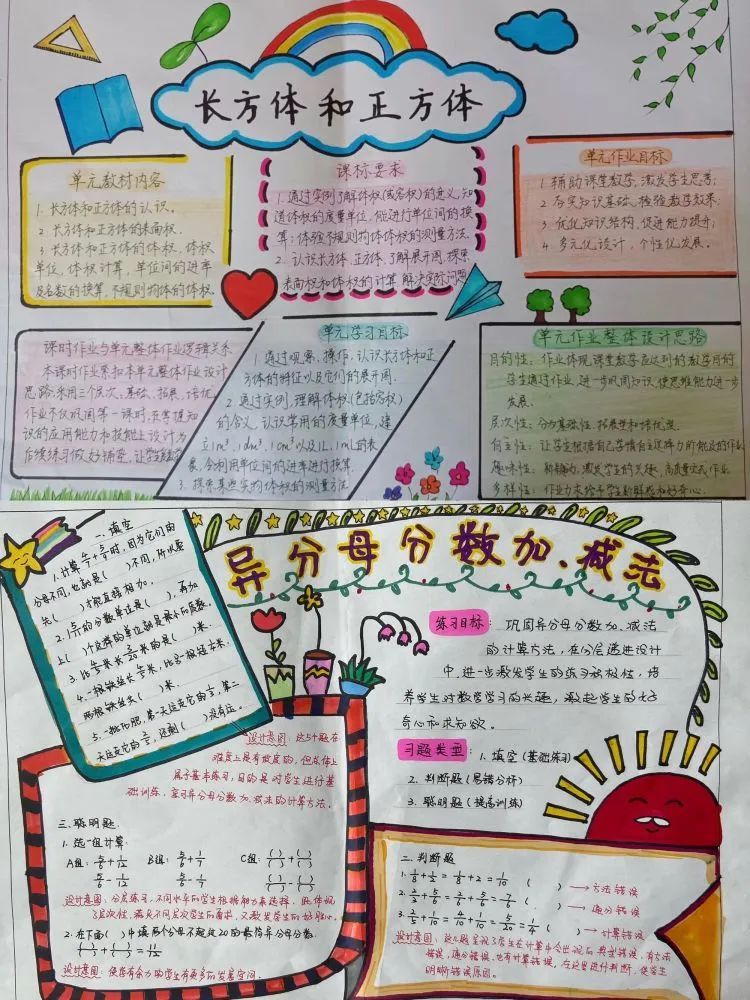 长方体和正方体
单元教材内容
1. 长方体和正方体的认识。
2. 长方体和正方体的表面积。
3. 长方体和正方体的体积、体积
单位，体积计算，单位间的进率
及名数的换算，不规则物体的体积。
课标要求
1. 通过实例了解体积(或容积)的意义，知
道体积的度量单位，能进行单位间的换
算；体验不规则物体体积的测量方法。
2. 认识长方体、正方体，了解展开图，探索
表面积和体积的计算，解决实际问题
单元作业目标
1. 辅助课堂教学，激发学生思考；
2. 夯实知识基础，检验教学效果；
3. 优化知识结构，促进能力提升；
4. 多元化设计，个性化发展。
课时作业与单元整体作业逻辑关系
本课时作业紧扣本单元整体作业设计
思路，采用三个层次：基础、拓展、培优，
作业不仅巩固第一课时，且掌握知
识的应用能力和技能上设计为
后续练习做好铺垫，让学生
单元学习目标
1. 通过观察、操作，认识长方体和正
方体的特征以及它们的展开图。
2. 通过实例，理解体积(包括容积)
的含义，认识常用的度量单位，建
立1m³、1dm³、1cm³以及1L、1mL的表
象，会利用单位间的进率进行换算。
3. 探索某些实物体积的测量方法
单元作业整体设计思路
目的性：作业体现课堂教学应达到的教学目的
学生通过作业，进一步巩固知识，使思维能力进一步
发展。
层次性：分为基础性、拓展型和培优型。
自主性：让学生根据自己学情自主选择力所能及的作业
趣味性：激发学生的兴趣，高质量完成作业
多样性：作业力求给予学生新鲜感和好奇心。
异分母分数加、减法
一、填空
1. 计算 时，因为它们的
分母不同，也就是( )不同，所以要
先( )才能直接相加。
2. 的分数单位是( )，再加
上( )个这样的单位就是最小的质数。
3. 比 米长 米的是( )米。
4. 一根铁丝长 米，比另一根短 米，
两根铁丝长( )米。
5. 一批化肥，第一天运走它的 ，第二
天运走它的 ，还剩( )没有运。
设计意图：这5个题在
难度上是有坡度的，但总体上
属于基本练习，目的是对学生进行基
础训练，复习异分母分数加、减法的计算方法。
练习目标：巩固异分母分数加、减法
的计算方法，在分层递进设计
中，进一步激发学生的练习积极性，培
养学生对数学学习的兴趣，激起学生的好
奇心和求知欲。
习题类型：1. 填空(基础练习)
2. 判断题(易错分析)
3. 聪明题(提高训练)
三、聪明题：
1. 选一组计算：
A组：5/6+1/12 B组：5/6+1/7 C组：( )/( )+( )/( )
5/6-1/12 5/6-1/7 ( )/( )-( )/( )
设计意图：分层练习，不同水平的学生根据能力来选择，既体现
了层次性，满足不同层次学生的需求，又激发学生的好胜心。
2. 在下面( )中填两个分母不超过20的最简异分母分数。
( )/( )+( )/( )=11/12
设计意图：使学有余力的学生有更多的发展空间。
二、判断题
1. 1/8+1/2=1/8+2=1/10 ( ) → 方法错误
2. 2/3+5/6=2/6+5/6=7/6 ( ) → 通分错误
3. 2/5+1/10=4/10+1/10=5/20=1/4 ( ) → 计算错误
设计意图：这3题呈现了学生在计算中会出现的典型错误，有方法
错误，通分错误，也有计算错误，在这里进行判断，使学生
明晰错误原因。